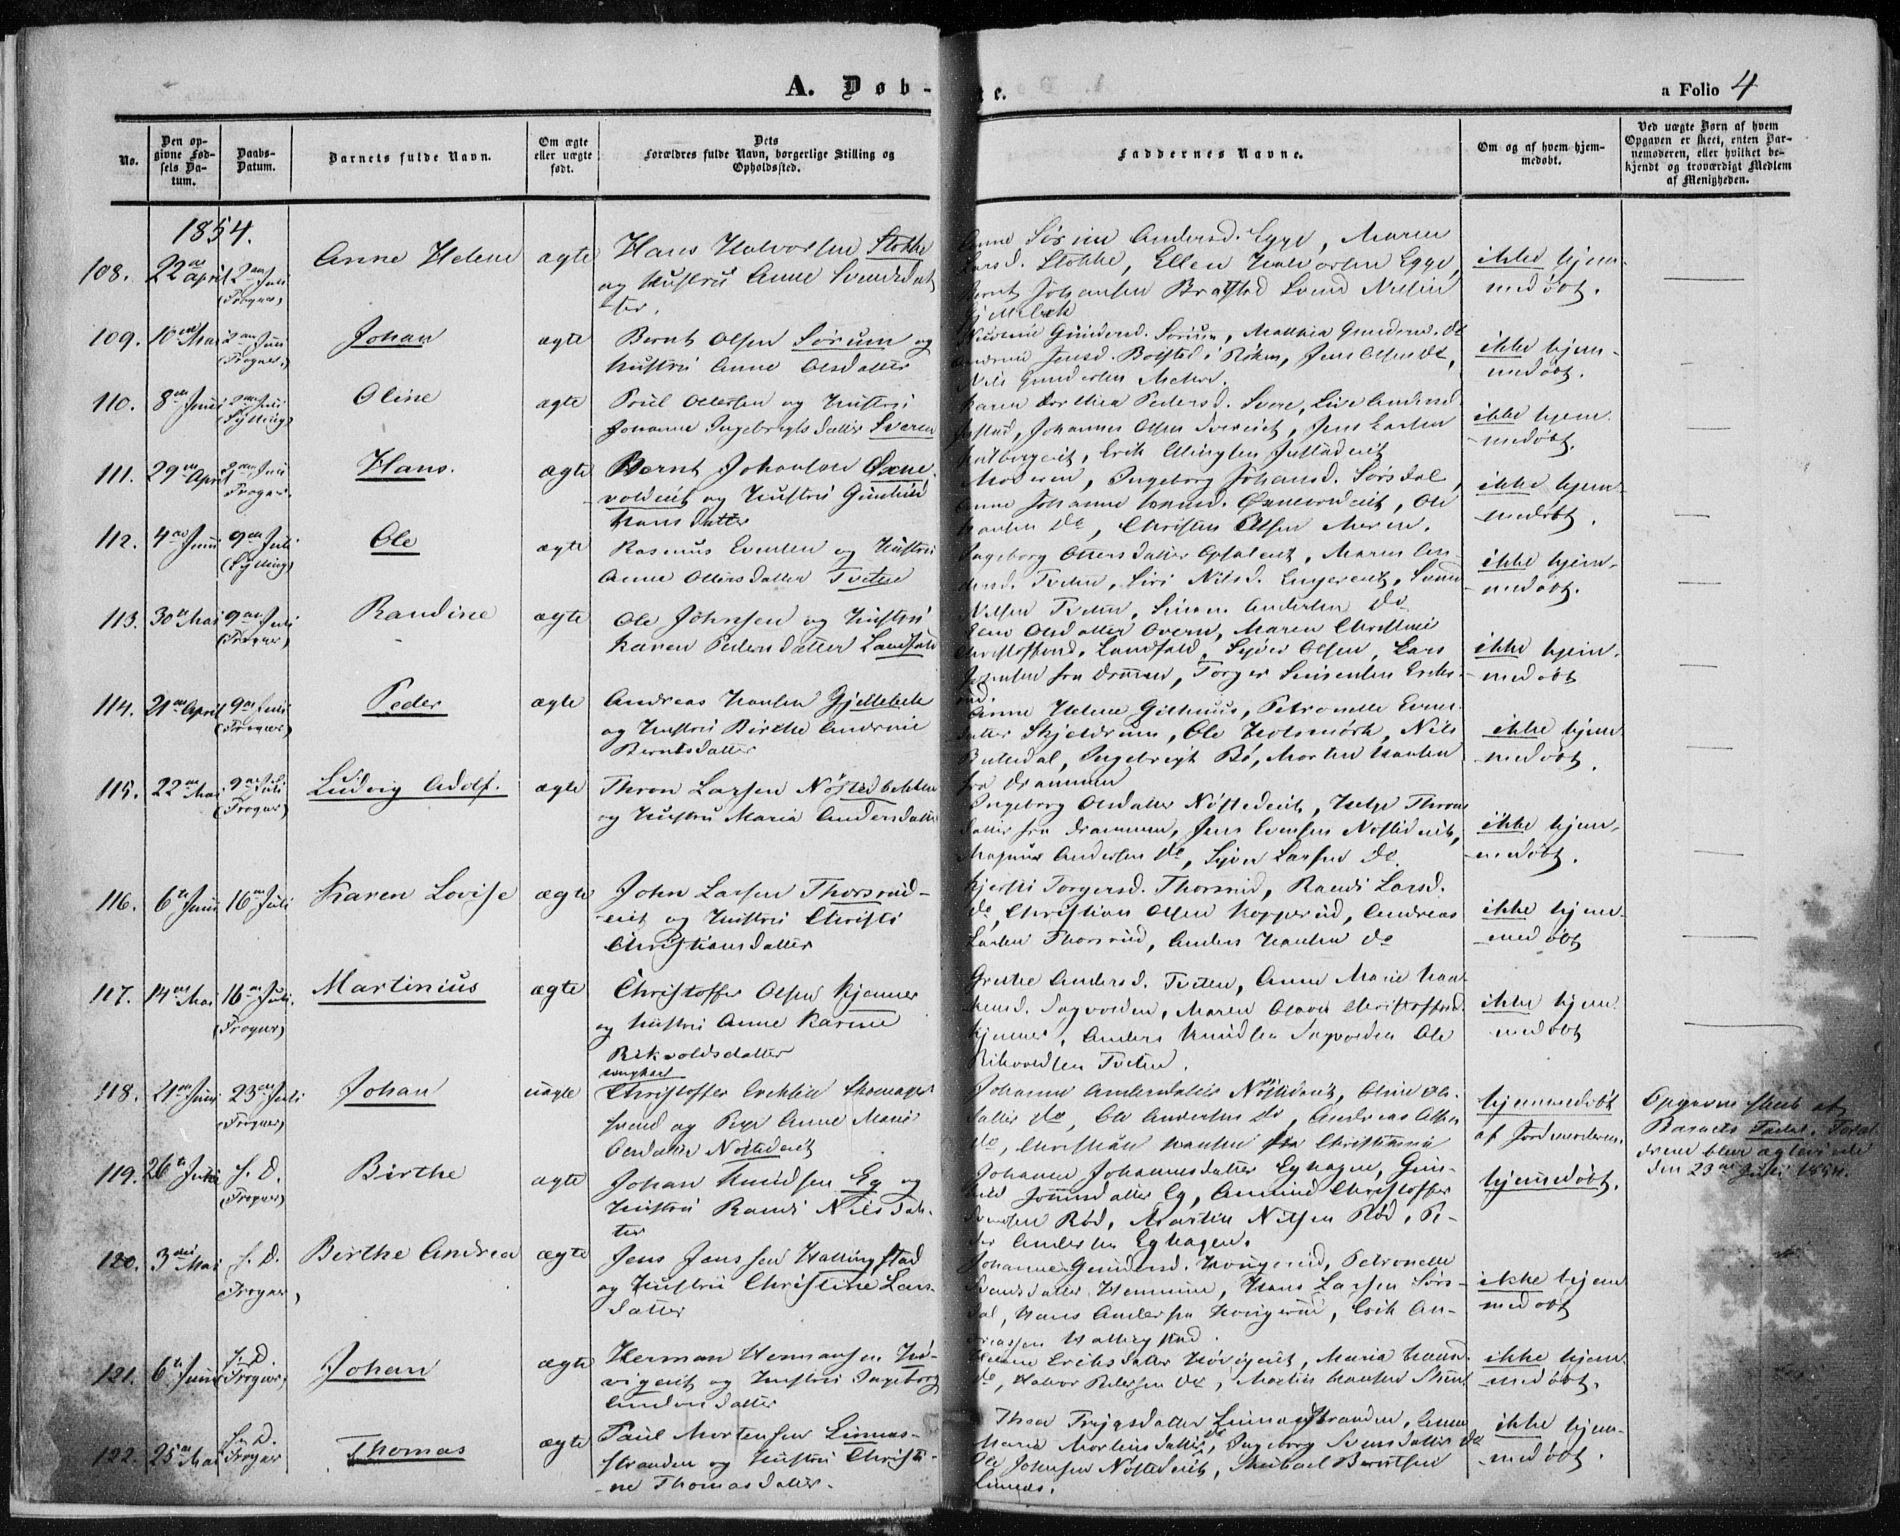 A. Døb-
te.
a Folio 4
No.
Den op-
givne Fød-
sels Da-
tum.
Daabs-
Datum.
Barnets fulde Navn.
Om ægte
eller uægte
født.
Dets
Forældres fulde Navn, borgerlige Stilling og
Opholdssted.
Faddernes Navne.
Om og af hvem hjem-
medøbt.
Ved uægte Børn af hvem
Opgaven er skeet, enten Bar-
nemoderen, eller hvilket be-
kjendt og troværdigt Medlem
af Menigheden.
1854.
108. 22de April 2den Juli (Frogner) Anne Helene ægte
Hans Halvorsen Stokke
og Hustru Anne Svendsdat
ter.
Anne Sørine Andersd. Egge, Maren
Larsd. Stokke, Ellen Halvorsen Egge,
Bernt Johansen Bragstad Svend Nilsen
Gjellebek
ikke hjem-
medøbt.
109. 10de Mai 2den Juli (Frogner) Johan ægte
Bernt Olsen Sørum og
Hustru Anne Olsdatter
Gundersd. Sørum, Mathea Gundersd. do
Andrine Jensd. Bølstad i Røken, Jens Olsen do,
Nils Gundersen
ikke hjem-
medøbt.
110. 8de Juni 2den Juli (Sylling) Oline ægte
Poul Ottersen og Hustru
Johanne Ingebrigtsdatter Sveren
Karen Dorthea Pedersd. Svere, Live Andersd.
Justad, Johannes Olsen Svereeiet, Jens Larsen
Erik Ellingsen Justadeiet
ikke hjem
medøbt.
111. 29de April 2den Juli Frogner. Hans. ægte
Bernt Johansen Øxne-
voldeiet og Hustru Gunhild
Hansdatter
Moderen, Ingeborg Johansd. Sørsdal,
Anne Johanne Hansd. Øxnevoldeiet, Ole
Hansen do, Christen Olsen Meren.
ikke hjem-
medøbt.
112. 4de Juni 9de Juli (Sylling) Ole ægte
Rasmus Evensen og Hustru
Anne Ottersdatter Tveten
Ingeborg Ottersdatter Opsaleiet, Maren An-
dersd. Tveten, Siri Nilsd. Engereiet, Svend
Nilsen Tveten, Simen Andersen do
ikke hjem-
medøbt.
113. 30te Mai 9de Juli (Frogner) Randine ægte
Ole Johnsen og Hustru
Karen Pedersdatter Landfald
Olsdatter Overn, Maren Christine
Christoffersd. Landfald, Syver Olsen, Lars
Jensen fra Drammen, Torger Simensen Eriks-
rud.
ikke hjem.
medøbt
114. 21de April 9de Juli (Frogner) Peder ægte
Andreas Hansen Gjellebek
og Hustru Birthe Andrine
Berntsdatter
Anne Helene Gilhuus, Petronelle Evens-
datter Skjeldrum, Ole Holsmørk, Nils
Ingebrigt Bø, Morten Hansen
fra Drammen
ikke hjem
medøbt.
115. 22de Mai 9de Juli (Frogner) Ludvig Adolf. ægte
Thron Larsen Nøstedbakken
og Hustru Maria Andersdatter
Ingeborg Olsdatter Nøstedeiet, Helge Throns
datter fra Drammen, Jens Evensen Nøstedeiet,
Magnus Andersen do, Syver Larsen do.
ikke hjem-
medøbt.
116. 6te Juni 16de Juli Karen Lovise ægte
John Larsen Thorsrud-
eiet og Hustru Christi
Christiansdatter
Kjersti Torgersd. Thorsrud, Randi Larsd.
do, Christian Olsen Kopperud, Andreas
Larsen Thorsrud, Anders Hansen do
ikke hjem-
medøbt
117. 14de Mai 16de Juli. (Frogner) Martinius ægte
Christoffer Olsen Kjenner
og Hustru Anne Karine
Rikvoldsdatter
Grethe Andersd. Tveten, Anne Marie Han-
sensd. Sagvolden, Maren Olava Christoffersd.
Kjenner, Anders Knudsen Sagvolden Ole
Rikvoldsen Tveten.
ikke hjem
medøbt
118. 4de Juni 23de Juli (Frogner) Johan uægte
Ungkarl
Christoffer Skomager
svend og Pige Anne Marie
Olsdatter Nøstedeiet
Johanne Andersdatter Nøstedeiet, Oline Ols-
datter do, Ole Andersen do, Andreas Olsen
do, Christian Hansen fra Christiania
hjemmedøbt
af Jordmoderen.
Opgaven skeet af
Barnets Fader. Foræl-
drene bleve ægteviede
den 23de Juli 1854.
119. 26de Juni s. D. (Frogner) Birthe ægte
Johan Knudsen Eg og
Hustru Randi Nilsdat-
ter
Johanne Johannesdatter Eghagen, Gun-
hild Jonsdatter Eg, Amund Christoffer
Svendsen Rød, Martin Nilsen Rød, Pe-
der Andersen Eghagen.
hjemmedøbt.
120. 3die Mai s. D. Frogner, Birthe Andrea ægte
Jens Jenssen Hallingstad
og Hustru Christine Lars-
datter
Johanne Gundersd. Hougerud, Petronelle
Svendsdatter Hennum, Hans Larsen Sørs-
dal, Hans Andersen Hougerud, Erik An-
dreassen Hallingstad.
ikke hjem
medøbt
121. 6te Juni s. D. (Frogner) Johan ægte
Herman Hermansen Hø-
vigeiet og Hustru Ingeborg
Andersdatter
Helene Eriksdatter Høvigeiet, Maria Hansd.
do, Halvor Pedersen do, Martin Hansen
ikke hjem
medøbt.
122. 25de Mai s. D. Frogner Thomas ægte
Paul Mortensen Linnes-
stranden og Hustru Christi-
ne Thomasdatter.
Thea Trygsdatter Linnesstranden, Anne
Marie Mortensdatter do, Ingeborg Svendsdatter do
Ole Johnsen Nøstedeiet, Michael Berntsen
Linnes.
ikke hjem-
medøbt.